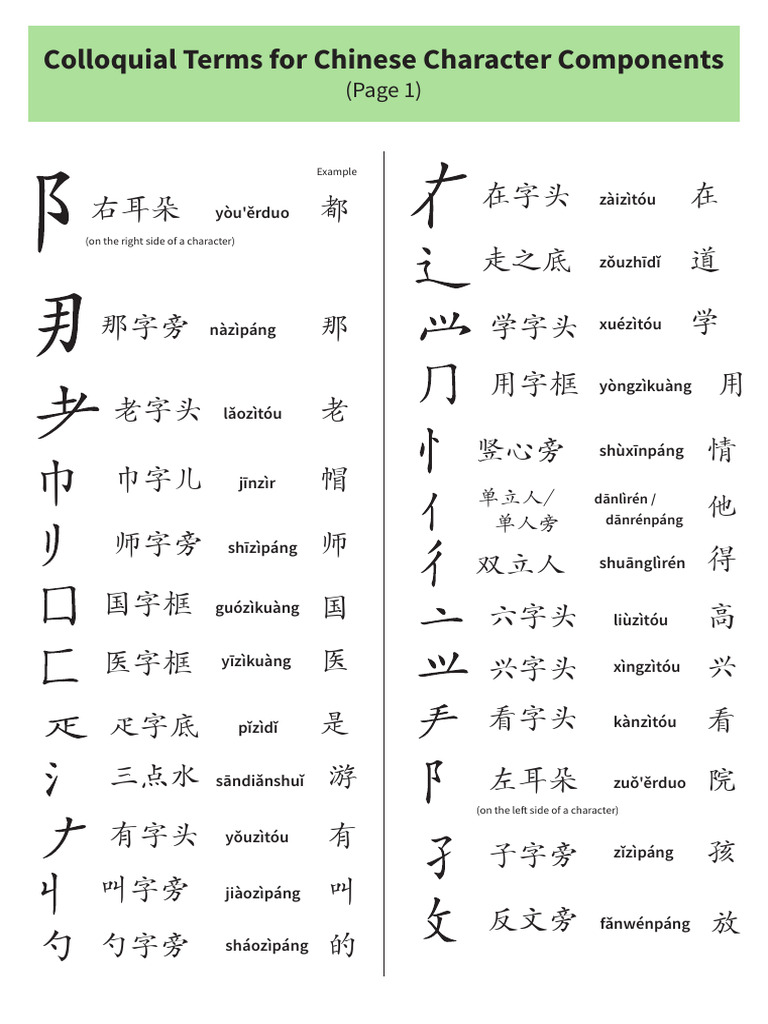 Colloquial Terms for Chinese Character Components
(Page 1)
Example
阝 右耳朵 yòu'ěrduo 都
(on the right side of a character)
那字旁 nàzìpáng 那
耂 老字头 lǎozìtóu 老
巾 巾字儿 jīnzìr 帽
刂 师字旁 shīzìpáng 师
囗 国字框 guózìkuàng 国
匚 医字框 yīzìkuàng 医
疋字底 pǐzìdǐ 是
氵 三点水 sāndiǎnshuǐ 游
𠂇 有字头 yǒuzìtóu 有
丩 叫字旁 jiàozìpáng 叫
勺 勺字旁 sháozìpáng 的
在字头 zàizìtóu 在
辶 走之底 zǒuzhīdǐ 道
学字头 xuézìtóu 学
⺆ 用字框 yòngzìkuàng 用
忄 竖心旁 shùxīnpáng 情
亻 单立人/ dānlìrén / 他
单人旁 dānrénpáng
彳 双立人 shuānglìrén 得
亠 六字头 liùzìtóu 高
兴字头 xìngzìtóu 兴
龵 看字头 kànzìtóu 看
阝 左耳朵 zuǒ'ěrduo 院
(on the left side of a character)
子 子字旁 zǐzìpáng 孩
攵 反文旁 fǎnwénpáng 放